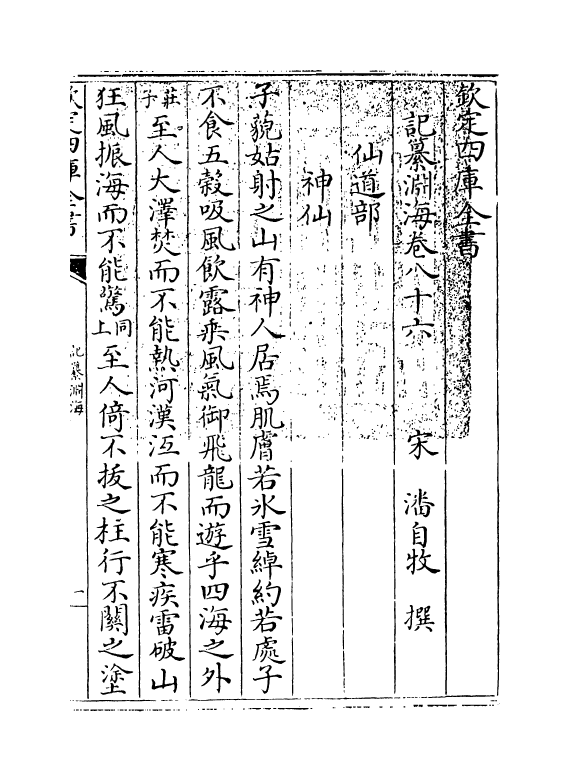 欽定四庫全書
記纂淵海卷八十六　宋　潘自牧　撰
仙道部
神仙
子藐姑射之山有神人居焉肌膚若氷雪綽約若處子
不食五榖吸風飲露乘風氣御飛龍而遊乎四海之外
莊子至人大澤焚而不能熱河漢冱而不能寒疾雷破山
狂風振海而不能驚同上至人倚不拔之柱行不關之塗
欽定四庫全書
記纂淵海
一